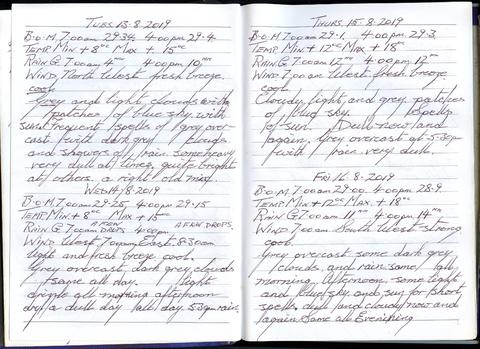 TUES 13-8-2019
B.O.M. 7.00am 29.34. 4.00pm 29.4.
TEMP. MIN + 8°C MAX + 15°C
RAIN.G. 7.00am 4mm 4.00pm 10mm
WIND. North West fresh breeze.
cool.
Grey and light clouds with
patches of blue sky. with
sun. Frequent spells of grey over
cast. with dark grey clouds
and showers of rain. some heavy
very dull at times, quite bright
at others. a right old mix.
WED 14/8-2019
B.O.M. 7.00am 29.25. 4.00pm 29.15
TEMP. MIN + 8°C MAX + 15°C
A FEW A FEW DROPS.
RAIN G. 7.00am DROPS 4.00pm
WIND West 7.00am East. 8.30am
light and fresh breeze. cool.
Grey overcast. dark grey clouds
same all day. light
drizzle all morning afternoon
dry a dull day all day. 5.30pm rain.
THURS. 15-8-2019
B.O.M. 7.00am 29.1. 4.00pm 29.3
TEMP. MIN + 12°C MAX + 18°C
RAIN.G. 7.00am 12mm 4.00pm 12mm
WIND. 7.00am West fresh breeze
cool.
Cloudy, light, and grey. patches
of blue sky. Spells
of sun. Dull now and
again. Grey overcast at 5.30pm
with rain very dull.
FRI 16 8-2019
B.O.M. 7.00am 29.00. 4.00pm 28.9
TEMP. MIN + 12°C MAX. + 18°C
RAIN G. 7.00am 11mm 4.00pm 14mm
WIND. 7.00am South West strong
cool.
Grey overcast some dark grey
clouds, and rain. same all
morning. Afternoon. some light
and blue sky and sun for short
spells. dull and cloudy now and
again. Same all Evening